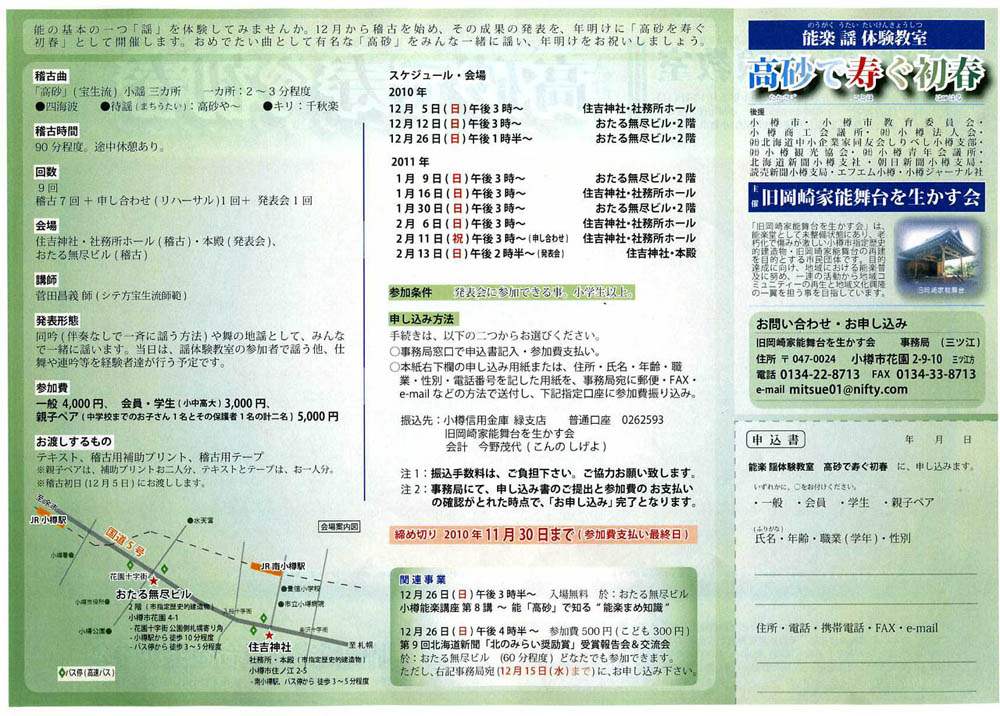 能の基本の一つ「謡」を体験してみませんか。12月から稽古を始め、その成果の発表を、年明けに「高砂を寿ぐ
初春」として開催します。おめでたい曲として有名な「高砂」をみんな一緒に謡い、年明けをお祝いしましょう。
稽古曲
「高砂」(宝生流) 小謡 三カ所　一カ所：２～３分程度
●四海波　●待謡 (まちうたい)：高砂や～　●キリ：千秋楽
稽古時間
90 分程度。途中休憩あり。
回数
９回
稽古７回 ＋ 申し合わせ (リハーサル) 1回＋ 発表会 1 回
会場
住吉神社・社務所ホール (稽古)・本殿 (発表会)、
おたる無尽ビル (稽古)
講師
菅田昌義 師 (シテ方宝生流師範)
発表形態
同吟 (伴奏なしで一斉に謡う方法) や舞の地謡として、みんな
で一緒に謡います。当日は、謡体験教室の参加者で謡う他、仕
舞や連吟等を経験者達が行う予定です。
参加費
一般 4,000 円、 会員・学生 (小中高大) 3,000 円、
親子ペア (中学校までのお子さん１名とその保護者１名の計二名) 5,000 円
お渡しするもの
テキスト、稽古用補助プリント、稽古用テープ
※親子ペアは、補助プリントお二人分、テキストとテープは、お一人分。
※稽古初日 (12 月 5 日) にお渡しします。
至余市
JR 小樽駅
国道５号
●水天宮
会場案内図
小樽署●
花園十字街
JR 南小樽駅
●量徳小学校
●市立小樽病院
小樽市役所●
おたる無尽ビル
２階 (市指定歴史的建造物)
小樽市花園 4-1
- 花園十字街 公園側札幌寄り角
- 小樽駅から 徒歩 10 分程度
- バス停から 徒歩５分程度
小樽公園●
入船十字街
至 札幌
住吉神社
社務所・本殿 (市指定歴史的建造物)
小樽市住ノ江 2-5
- 南小樽駅、バス停から 徒歩 3～5 分程度
バス停 (高速バス)
スケジュール・会場
2010 年
12 月 5 日 (日) 午後 3 時～　住吉神社・社務所ホール
12 月 12 日 (日) 午後 3 時～　おたる無尽ビル・2 階
12 月 26 日 (日) 午後 1 時半～　おたる無尽ビル・2 階
2011 年
1 月 9 日 (日) 午後 3 時～　おたる無尽ビル・2 階
1 月 16 日 (日) 午後 3 時～　住吉神社・社務所ホール
1 月 30 日 (日) 午後 3 時～　おたる無尽ビル・2 階
2 月 6 日 (日) 午後 3 時～　住吉神社・社務所ホール
2 月 11 日 (祝) 午後 3 時～ (申し合わせ)　住吉神社・社務所ホール
2 月 13 日 (日) 午後 2 時半～ (発表会)　住吉神社・本殿
参加条件　発表会に参加できる事。小学生以上。
申し込み方法
手続きは、以下の二つからお選びください。
○事務局窓口で申込書記入・参加費支払い。
○本紙右下欄の申し込み用紙または、住所・氏名・年齢・職
業・性別・電話番号を記した用紙を、事務局宛に郵便・FAX・
e-mail などの方法で送付し、下記指定口座に参加費振り込み。
振込先：小樽信用金庫 緑支店　普通口座　0262593
旧岡崎家能舞台を生かす会
会計　今野茂代 (こんの しげよ)
注 1：振込手数料は、ご負担下さい。ご協力お願い致します。
注 2：事務局にて、申し込み書のご提出と参加費の お支払い
の確認がとれた時点で、「お申し込み」完了となります。
締め切り 2010 年 11 月 30 日まで (参加費支払い最終日)
関連事業
12 月 26 日 (日) 午後 3 時半～　入場無料　於：おたる無尽ビル
小樽能楽講座 第 8 講 ～ 能「高砂」で知る “能楽まめ知識”
12 月 26 日 (日) 午後 4 時半～　参加費 500 円 (こども 300 円)
第 9 回北海道新聞「北のみらい奨励賞」受賞報告会＆交流会
於：おたる無尽ビル　(60 分程度) どなたでも参加できます。
ただし、右記事務局宛 (12 月 15 日 (水) まで) に、お申し込み下さい。
のうがく うたい たいけんきょうしつ
能楽 謡 体験教室
高砂で寿ぐ初春
たかさご　ことほ　はつはる
後援
小樽市・小樽市教育委員会・
小樽商工会議所・㈳小樽法人会・
㈳北海道中小企業家同友会しりべし小樽支部・
㈳小樽観光協会・㈳小樽青年会議所・
北海道新聞小樽支社・朝日新聞小樽支局・
読売新聞小樽支局・エフエム小樽・小樽ジャーナル社
主催 旧岡崎家能舞台を生かす会
「旧岡崎家能舞台を生かす会」は、
能楽堂として未整備状態にあり、老
朽化で傷みが激しい小樽市指定歴史
的建造物・旧岡崎家能舞台の再建
を目的とする市民団体です。目的
達成に向け、地域における能楽普
及に努め、一連の活動から地域コ
ミュニティーの再生と地域文化興隆
の一翼を担う事を目指しています。
旧岡崎家能舞台
お問い合わせ・お申し込み
旧岡崎家能舞台を生かす会　事務局 (三ツ江)
住所 〒 047-0024　小樽市花園 2-9-10 三ツ江方
電話 0134-22-8713　FAX 0134-33-8713
e-mail mitsue01@nifty.com
申込書　年　月　日
能楽 謡体験教室　高砂で寿ぐ初春　に、申し込みます。
いずれかに、○をお付けください。
・一般　・会員　・学生　・親子ペア
(ふりがな)
氏名・年齢・職業 (学年)・性別
住所・電話・携帯電話・FAX・e-mail